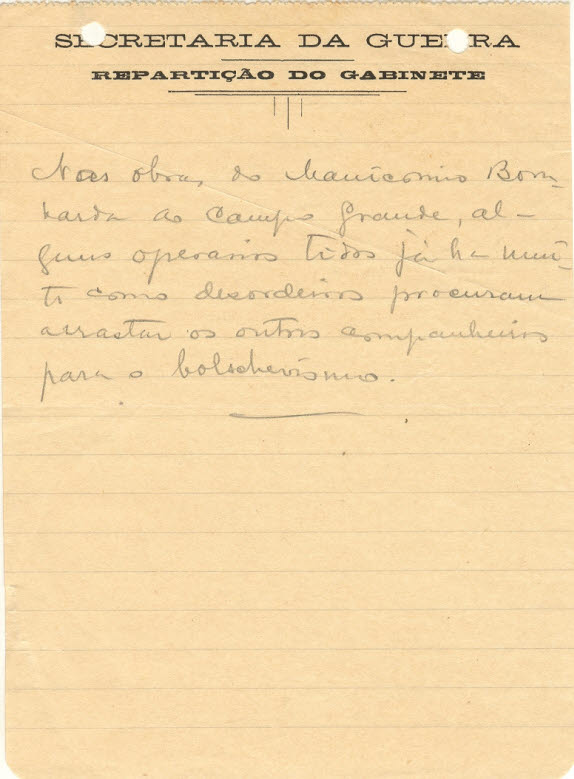 SECRETARIA DA GUERRA
REPARTIÇÃO DO GABINETE
Nas obras do Manicomio Bom-
barda ao Campo Grande, al-
guns operarios tidos já ha mui-
to como desordeiros procuram
arrastar os outros companheiros
para o bolschevismo.